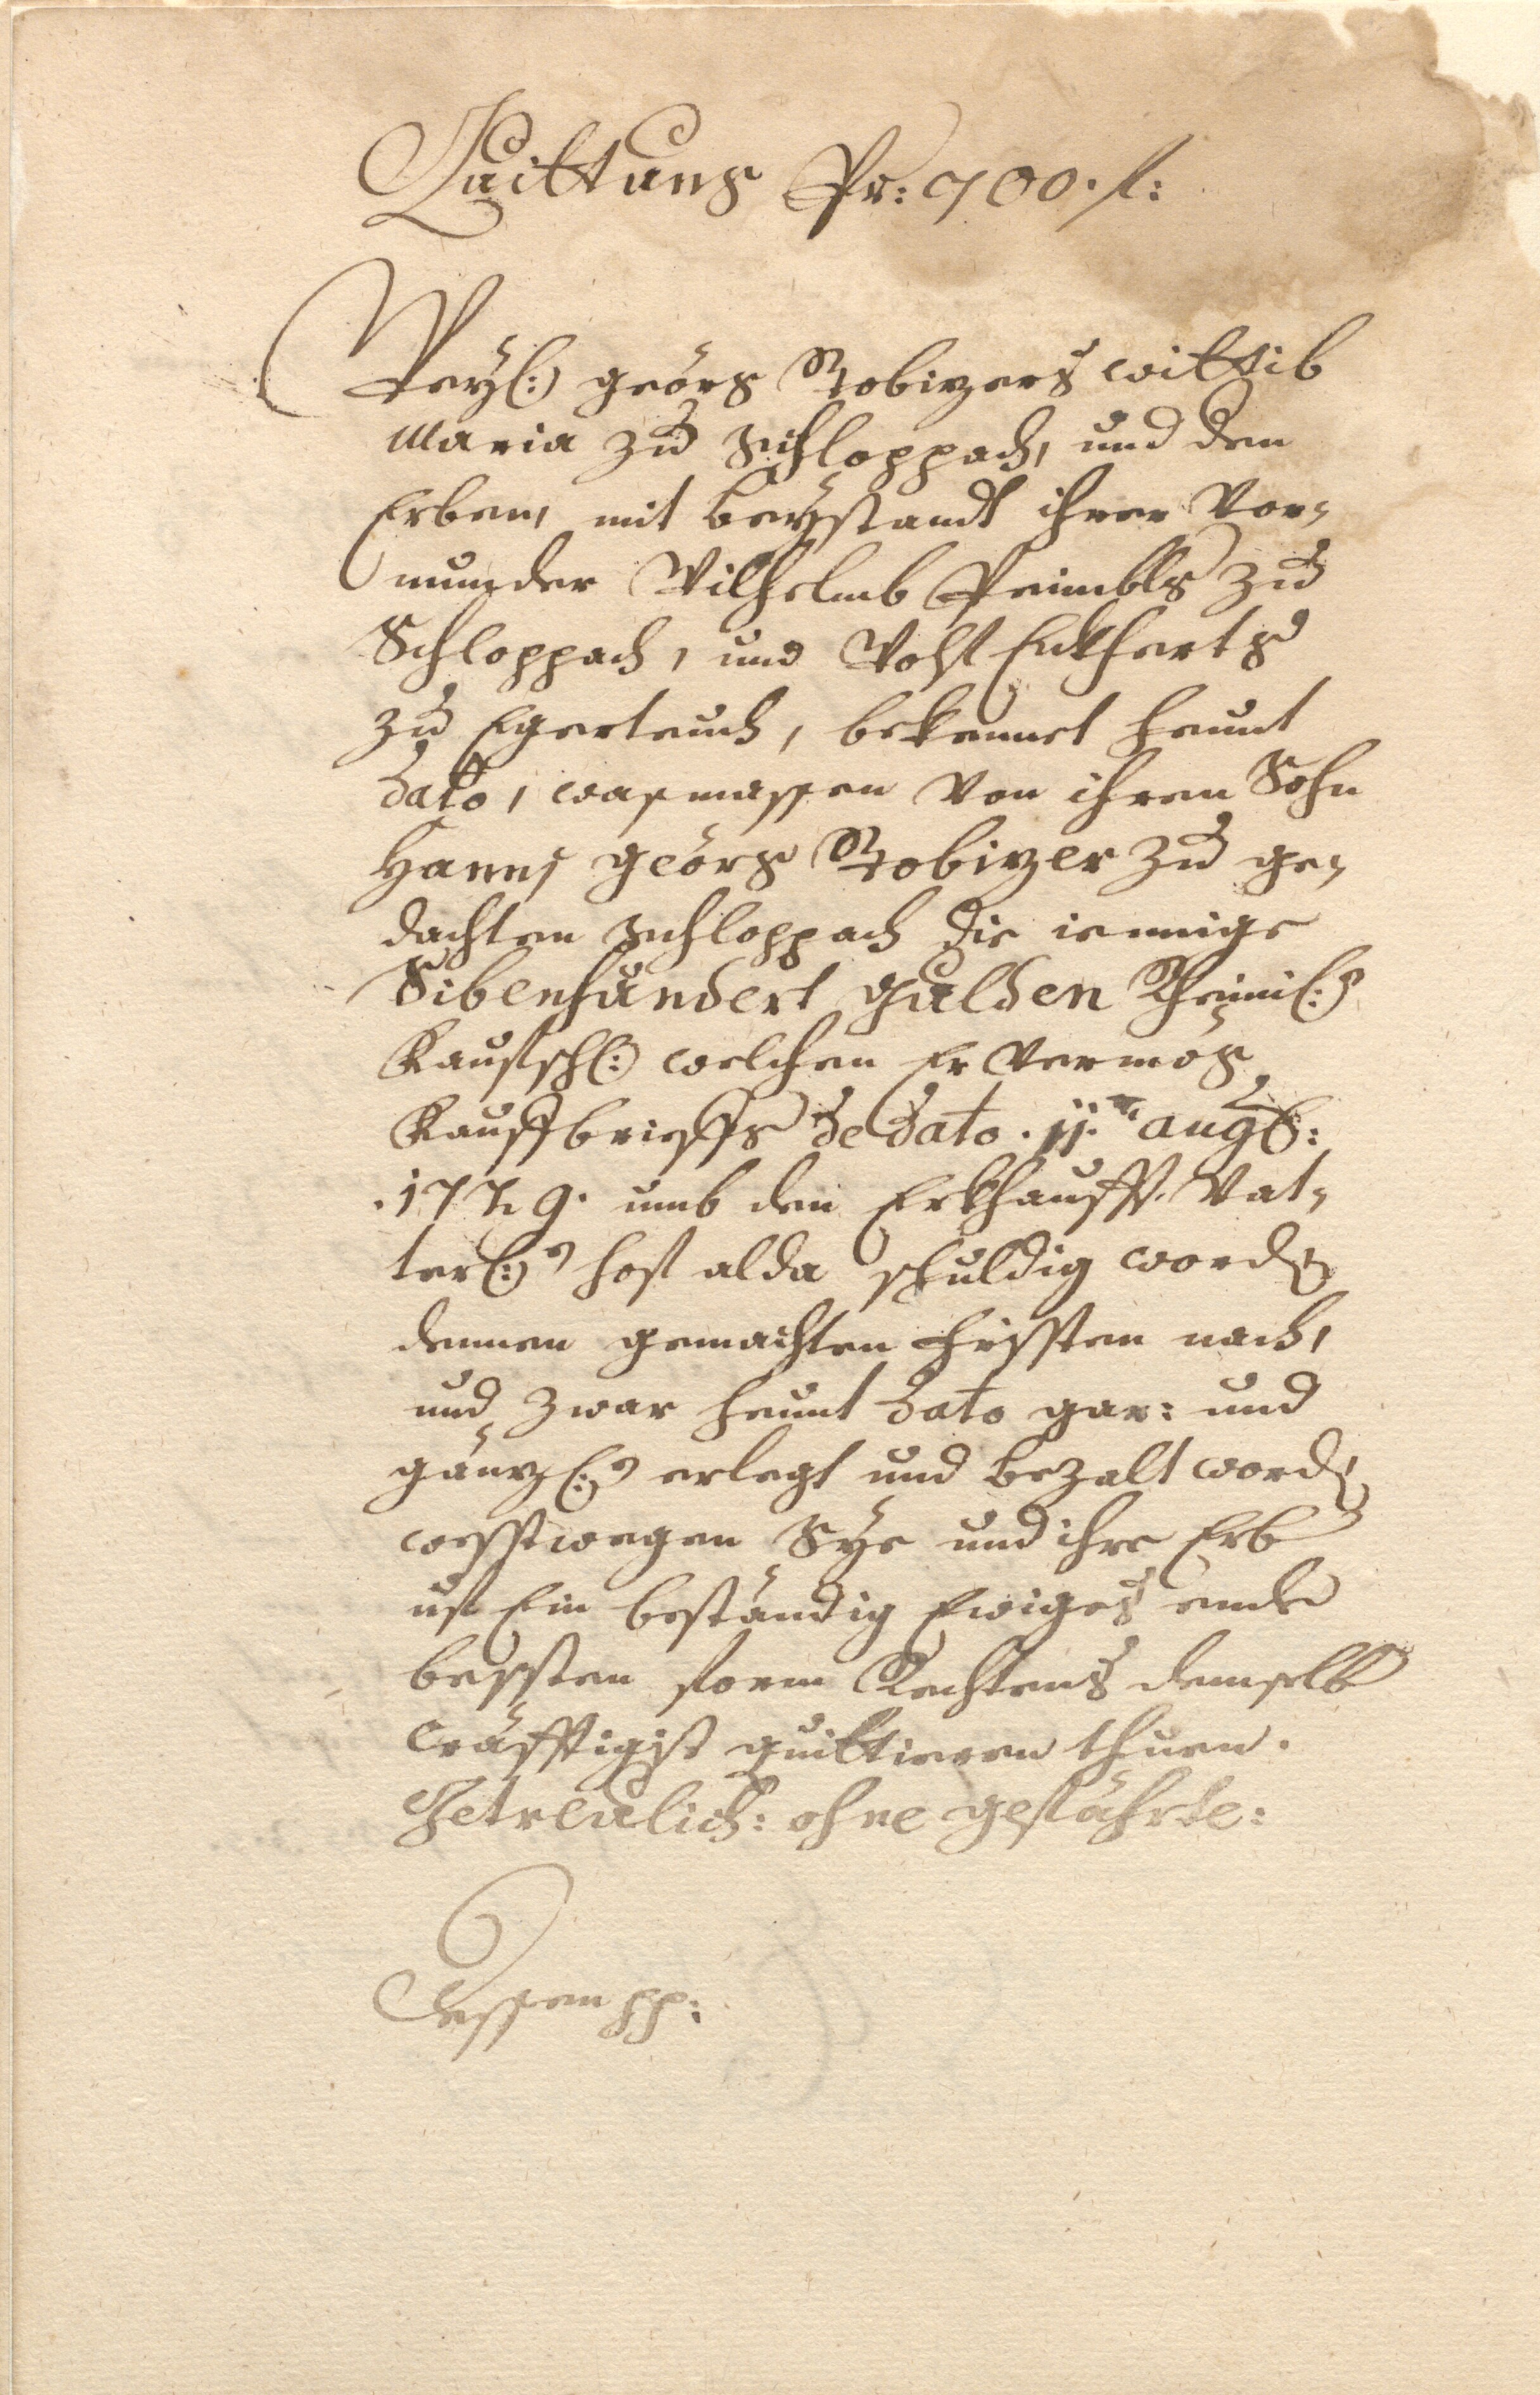 Quittung Pr: 700. f:
Weyl: geörg Stobizers wittib
Maria zu Schloppach, und den
Erben, mit beystandt ihrer Vor-
munder Wilhelmb Peimbls zu
Schloppach, und Eckherts
zu Egerteuch, bekennet heunt
dato, wasmassen von ihren Sohn
Hannß geörg Stobizer zu ge-
dachten Schloppach die iennige
Sibenhundert gulden Rheinis:
Kaufsch: welchen Er vermög
Kauffbrieffs de dato. 11. augs:
umb den Erkhaufft. Vat-
terl: hof alda schuldig word
dennen gemachten fristen nach,
und zwar heunt dato gar: und
gänzl: erlegt und bezalt word
wesstwegen Sye und ihre Erb
uf Ein beständig Ewiges ende
bessten form Rechtens demselb
cräfftigist quittieren thuen.
Getreulich: ohne gefährte:
Dessen pp: